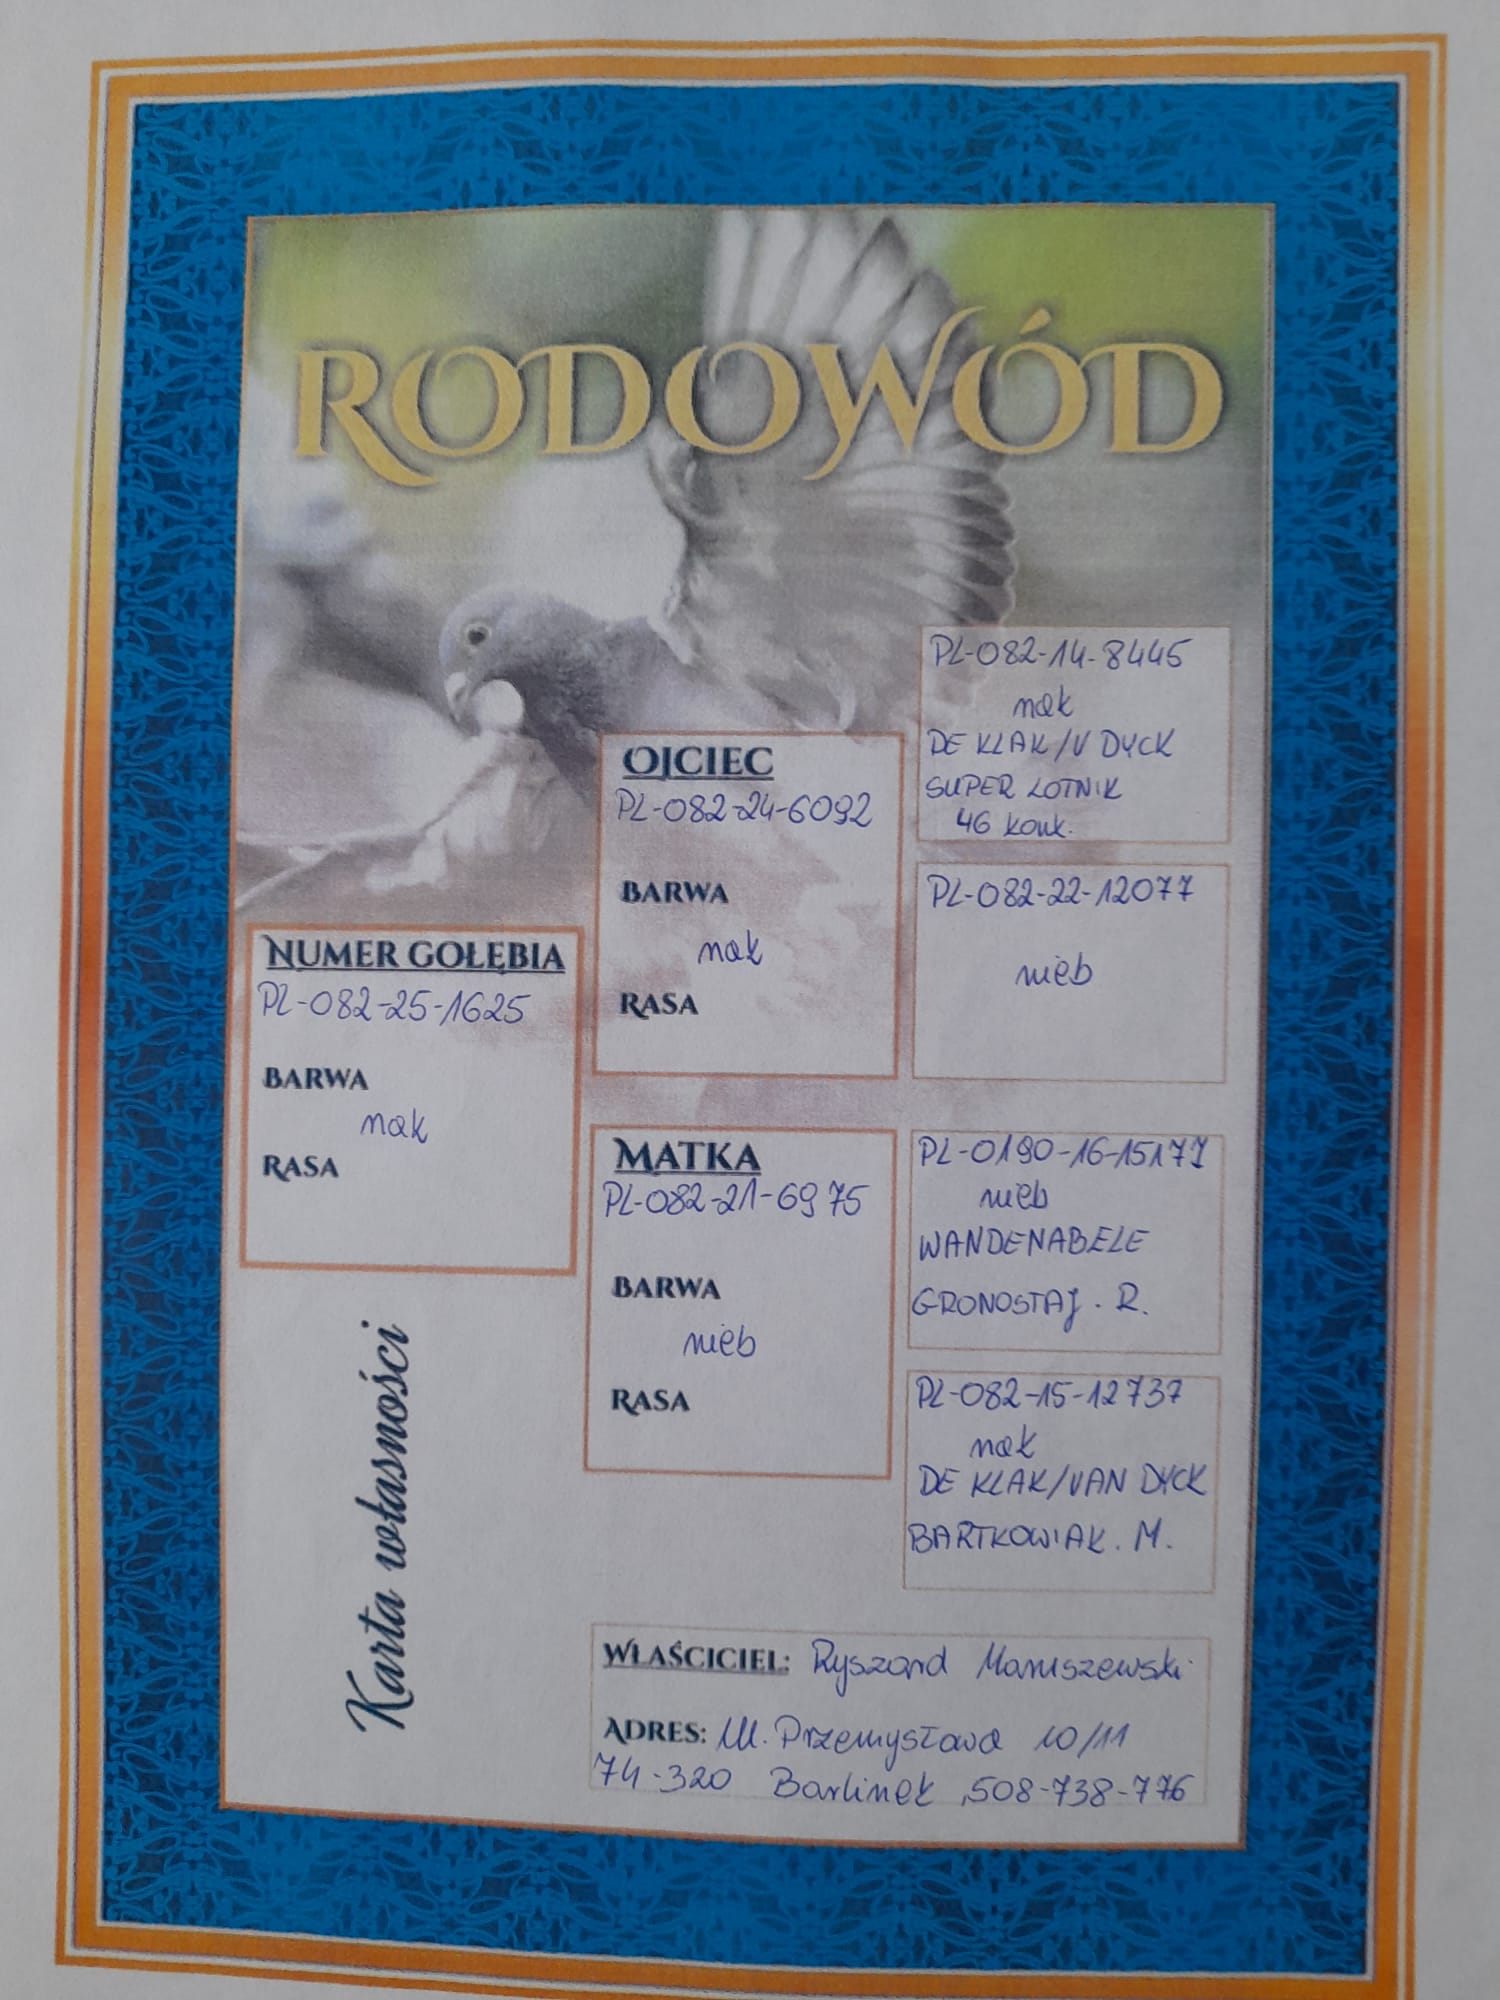 RODOWÓD
NUMER GOŁĘBIA
PL-082-25-1625
BARWA
nak
RASA
OJCIEC
PL-082-24-6092
BARWA
nak
RASA
MATKA
PL-082-21-6975
BARWA
nieb
RASA
PL-082-14-8445
nak
DE KLAK/V DYCK
SUPER LOTNIK
46 konk.
PL-082-22-12077
nieb
PL-0190-16-15177
nieb
WANDENABELE
GRONOSTAJ. R.
PL-082-15-12737
nak
DE KLAK/VAN DYCK
BARTKOWIAK. M.
Karta własności
WŁAŚCICIEL: Ryszard Maruszewski
ADRES: Ul. Przemysława 10/11
74-320 Barlinek, 508-738-776